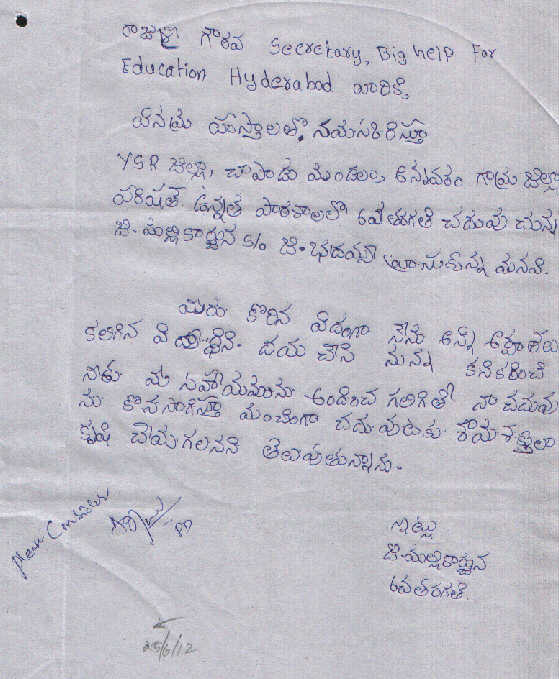 రాజశ్రీ గౌరవ Secretary, Big help For
Education Hyderabad వారికి,
వినమ్ర హస్తాలతో నమస్కరిస్తూ
YSR జిల్లా, చాపాడు మండలం, అన్నవరం గ్రామ జిల్లా
పరిషత్ ఉన్నత పాఠశాలలో 6వ తరగతి చదువు చున్న
జి. మల్లికార్జున S/o జి. వ్రాసుకున్న మనవి.
మీరు కోరిన విధంగా నేను అన్ని అర్హతలు
కలిగిన విద్యార్థిని. దయ చేసి నున్న కనికరించి
నాకు మీ సహాయమును అందించ గలిగితే నా చదువు
ను కొనసాగిస్తూ మంచిగా చదువుటకు శక్తులా
కృషి చేయగలనని తెలుపుతున్నాను.
ఇట్లు
జి. మల్లికార్జున
6వ తరగతి.
25/6/12